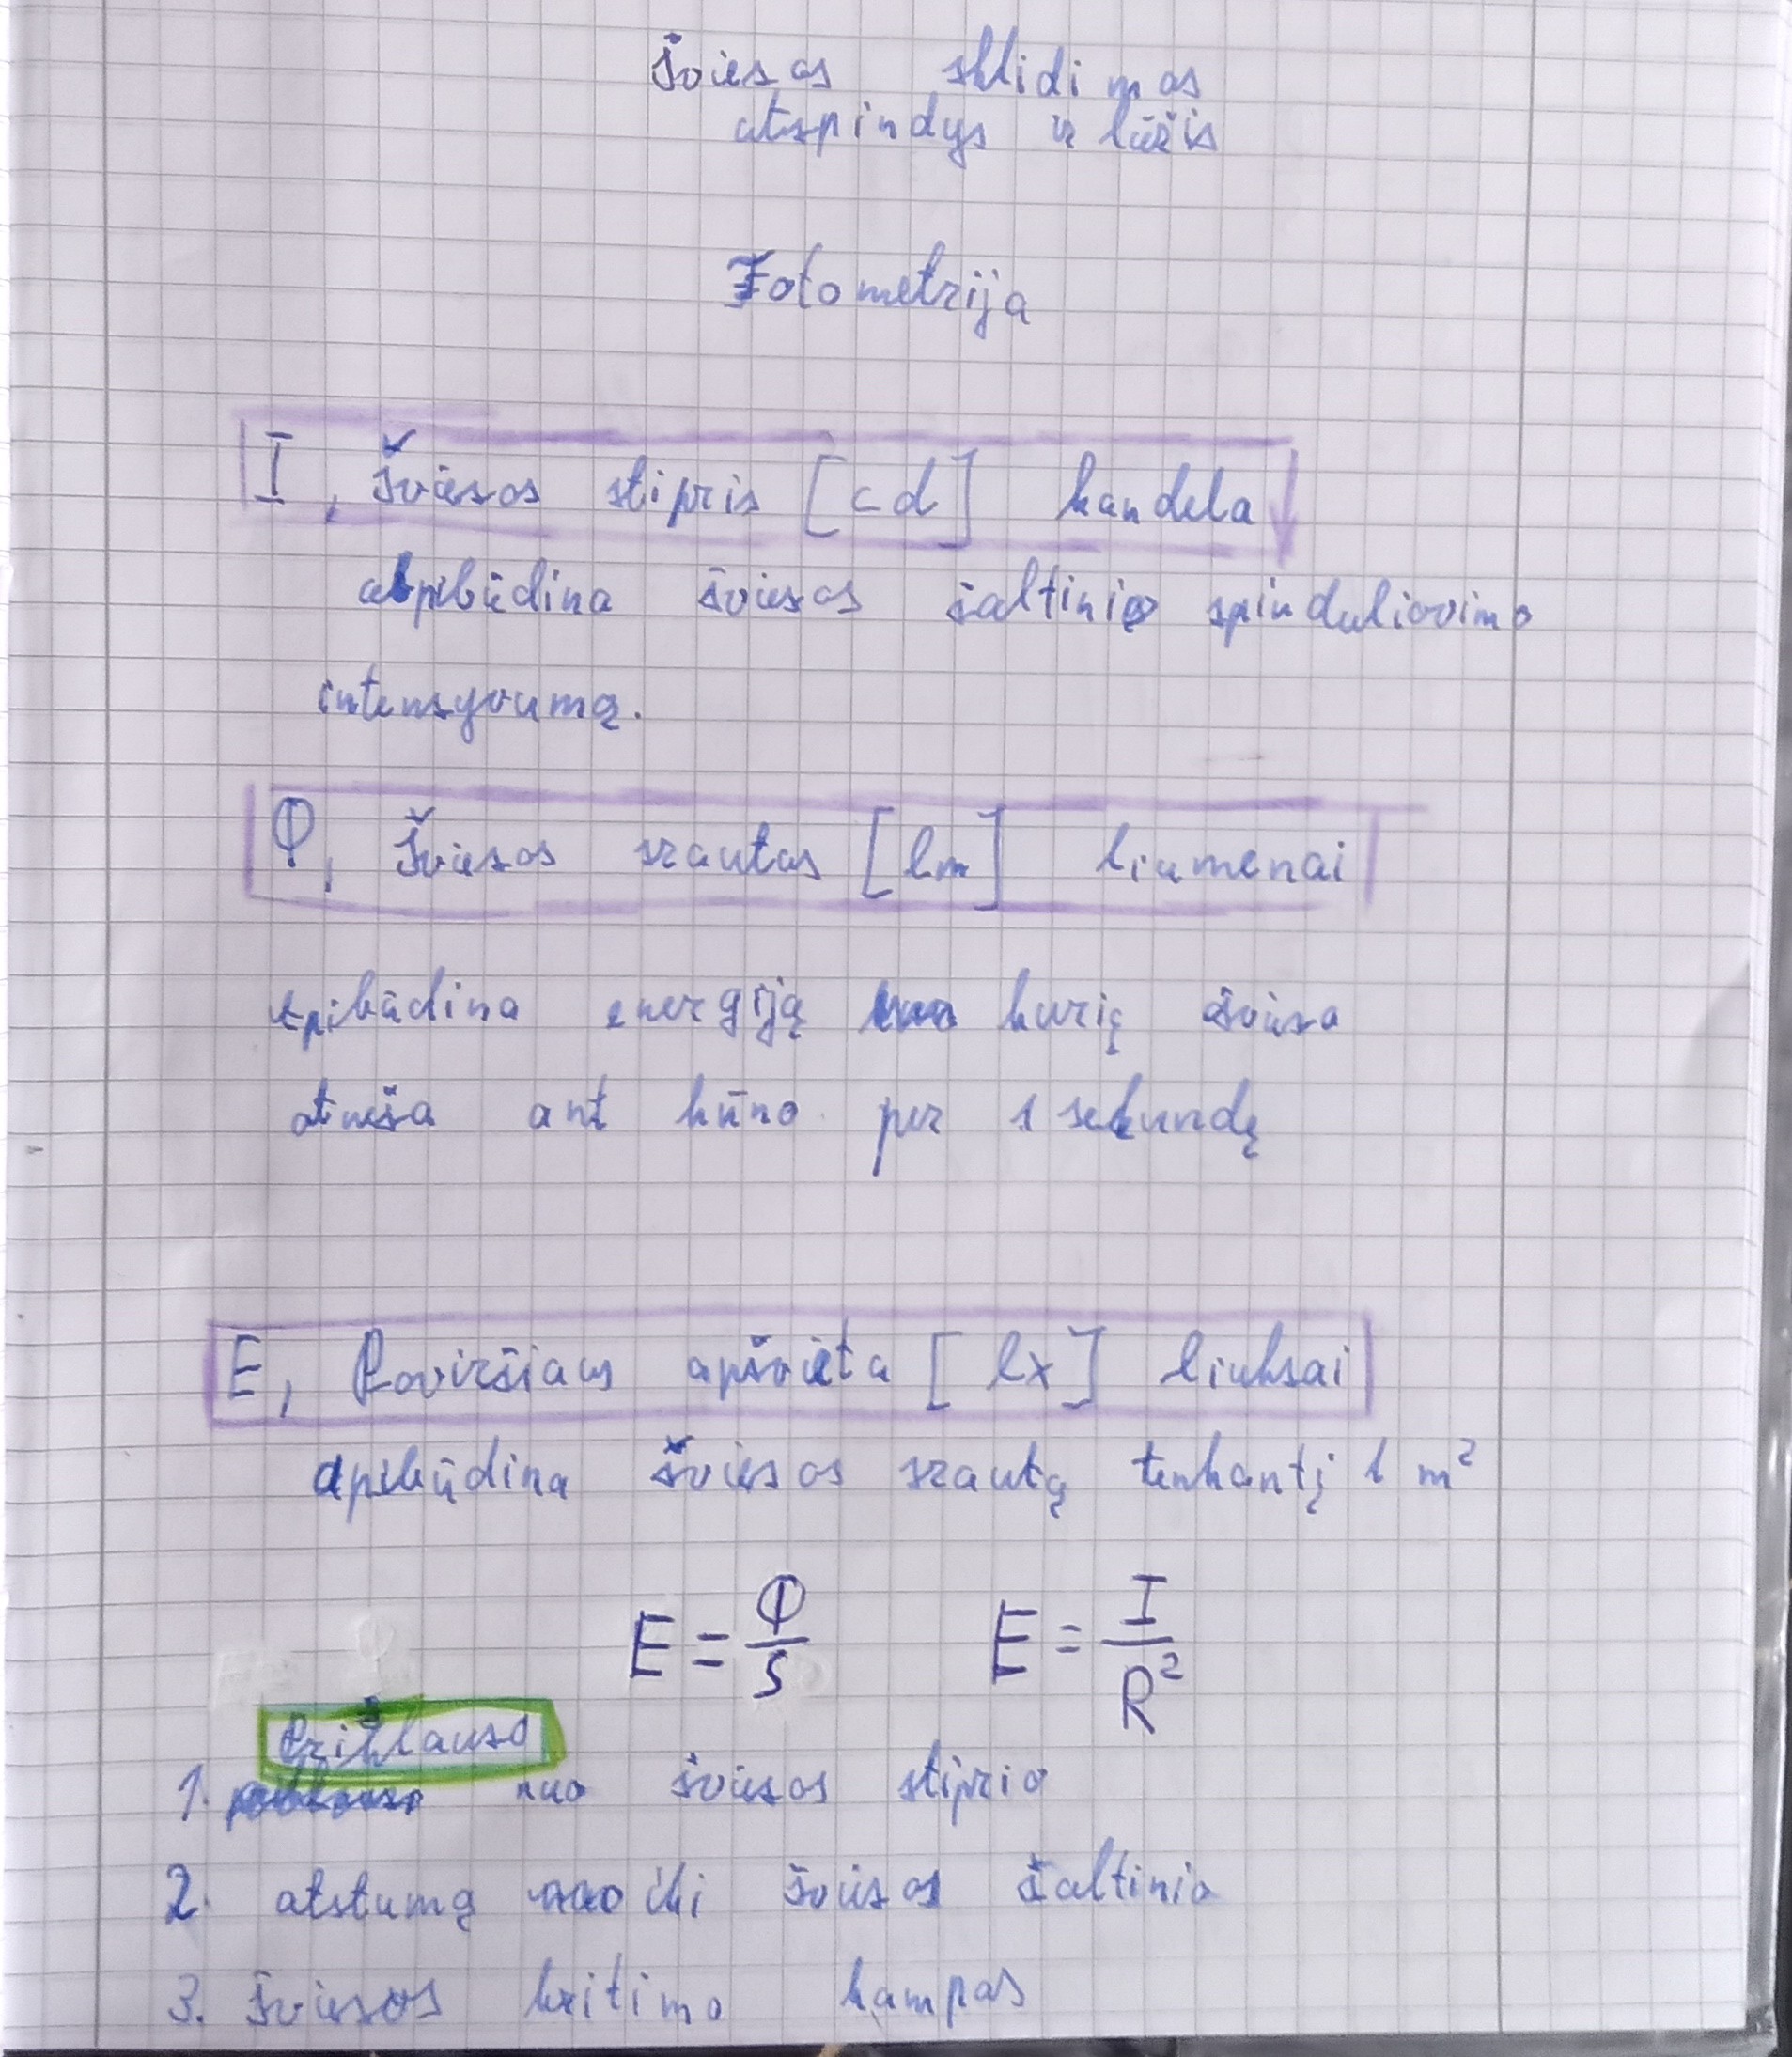 Šviesos sklidimas
atspindys ir lūžis
Fotometrija
I, Šviesos stipris [cd] kandela
apibūdina šviesos šaltinio spinduliavimo
intensyvumą.
Φ, Šviesos srautas [lm] liumenai
apibūdina energiją kurią šviesa
atneša ant kūno per 1 sekundę
E, Paviršiaus apšvieta [lx] liuksai
apibūdina šviesos srautą tenkantį 1 m²
E = Φ/S E = I/R²
Priklauso
1. nuo šviesos stiprio
2. atstumą iki šviesos šaltinio
3. šviesos kritimo kampas